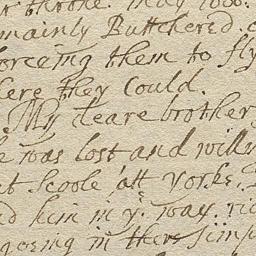 throne. may 1660.
mainly Butchered
forceing them to fly
here they Could.
My deare brother
e was lost and willy
at Scoole att Yorke.
him in yᵉ way
goeing in there simp